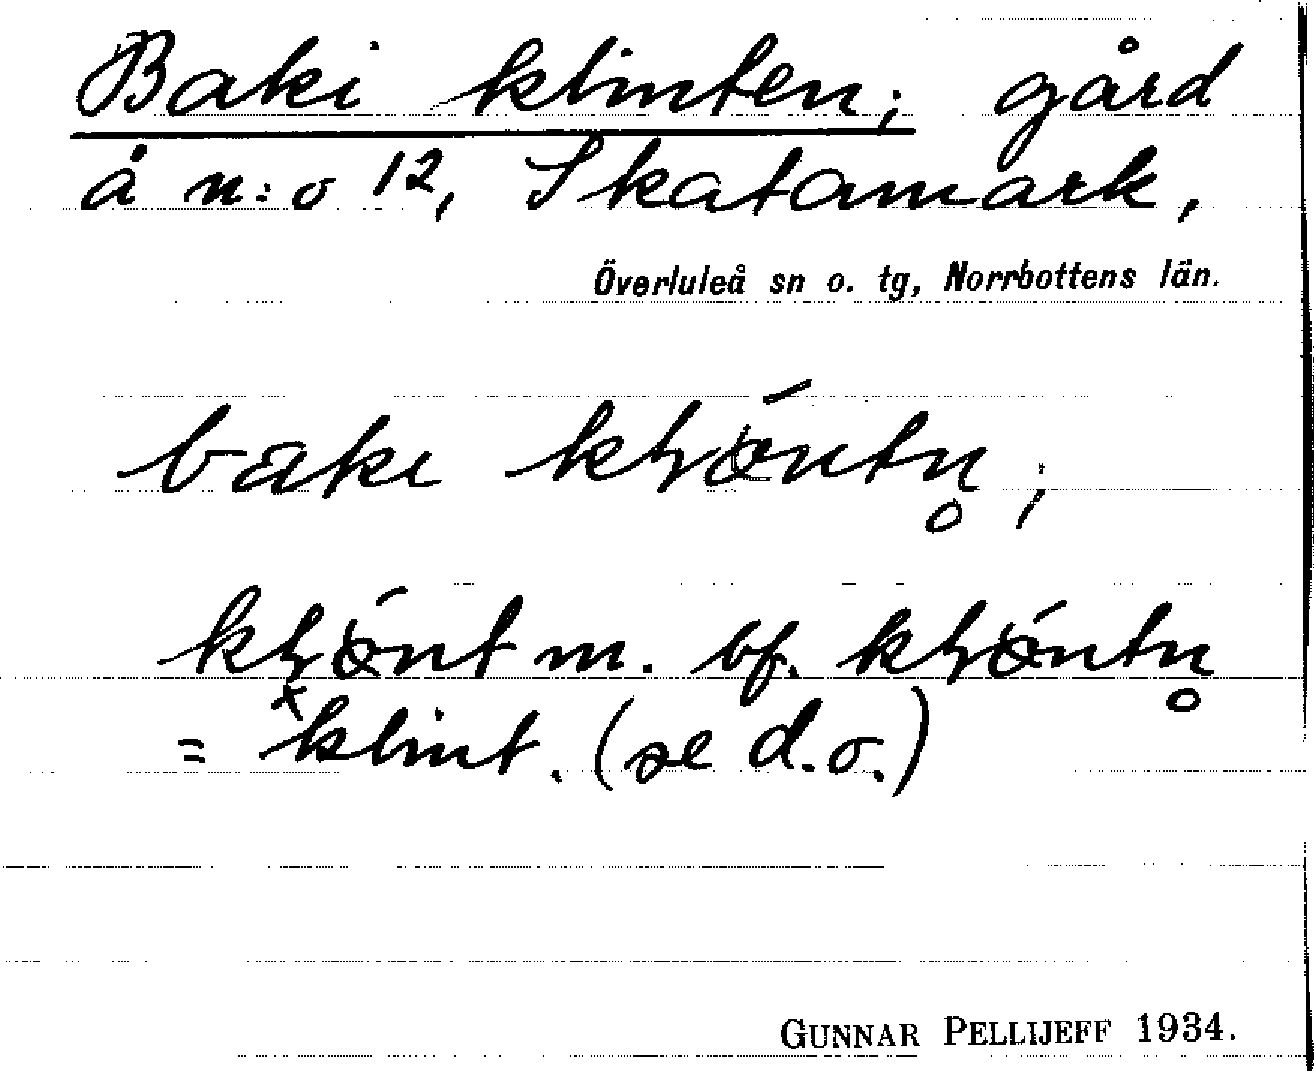 Baki klinten; gård
å n:o 12, Skatamark,
Överluleå sn o. tg, Norrbottens län.
baki
m. bf.
= ˣklint. (se d.o.)
GUNNAR PELLIJEFF 1934.